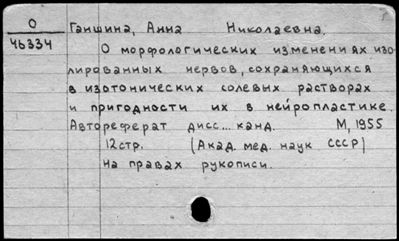 О
46334
Ганшина, Анна Николаевна.
О морфологических изменениях изо-
лированных нервов, сохраняющихся
в изотонических солевых растворах
и пригодности их в нейропластике.
Автореферат дисс... канд. М, 1955
12стр. (Акад. мед. наук СССР)
На правах рукописи.